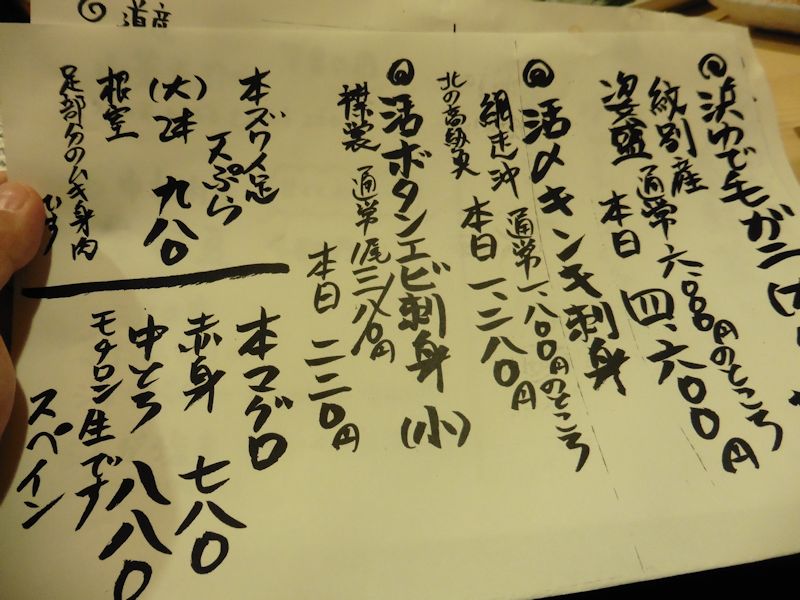 道産
浜ゆで毛ガニ(
紋別産
姿盛 通常六、〇〇〇円のところ
本日 四、六〇〇円
活〆キンキ刺身
網走沖 通常一、八〇〇円のところ
北の高級魚 本日 一、二八〇円
活ボタンエビ刺身(小)
襟裳 通常一尾三八〇円
本日 二二〇円
本ズワイ足
天ぷら
(大)2本 九八〇
根室
足部分のムキ身肉
本マグロ
赤身 七八〇
中とろ 八八〇
モチロン生です
スペイン